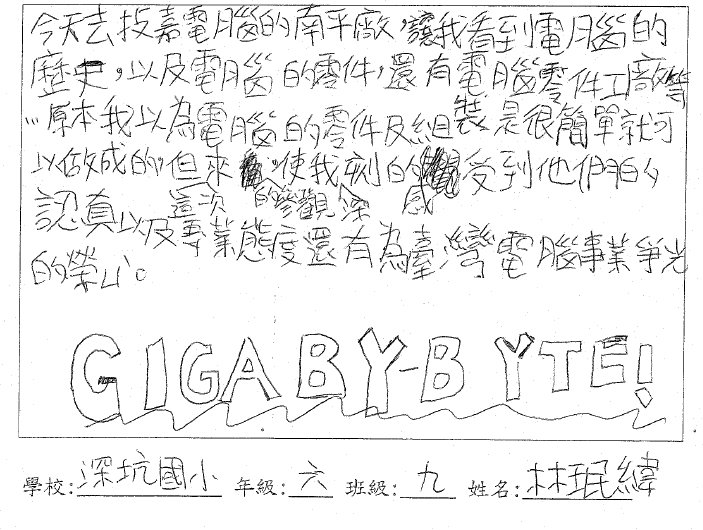 今天去技嘉電腦的南平廠，讓我看到電腦的
歷史，以及電腦的零件，還有電腦零件工廠等
…原本我以為電腦的零件及組裝是很簡單就可
以做成的，但來，使我刻的受到他們的
這次的參觀深感
認真以及專業態度還有為臺灣電腦事業爭光
的榮心。
GIGABY-BYTE!
學校:深坑國小 年級:六 班級:九 姓名:林珉緯